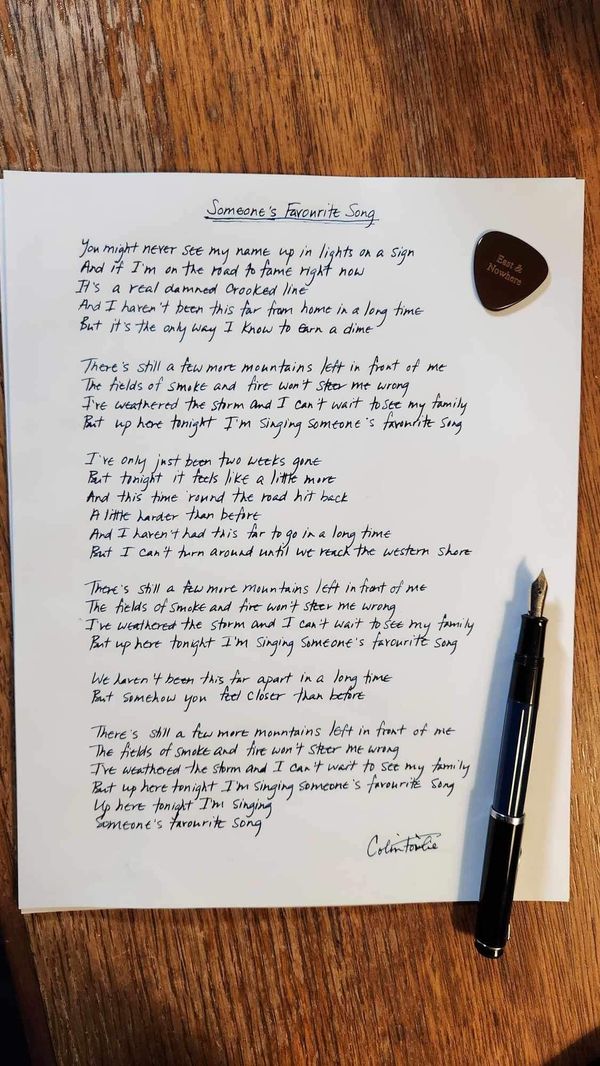 Someone's Favourite Song
East &
Nowhere
You might never see my name up in lights on a sign
And if I'm on the road to fame right now
It's a real damned crooked line
And I haven't been this far from home in a long time
But it's the only way I know to earn a dime
There's still a few more mountains left in front of me
The fields of smoke and fire won't steer me wrong
I've weathered the storm and I can't wait to see my family
But up here tonight I'm singing someone's favourite song
I've only just been two weeks gone
But tonight it feels like a little more
And this time 'round the road hit back
A little harder than before
And I haven't had this far to go in a long time
But I can't turn around until we reach the western shore
There's still a few more mountains left in front of me
The fields of smoke and fire won't steer me wrong
I've weathered the storm and I can't wait to see my family
But up here tonight I'm singing someone's favourite song
We haven't been this far apart in a long time
But somehow you feel closer than before
There's still a few more mountains left in front of me
The fields of smoke and fire won't steer me wrong
I've weathered the storm and I can't wait to see my family
But up here tonight I'm singing someone's favourite song
Up here tonight I'm singing
Someone's favourite song
Colin